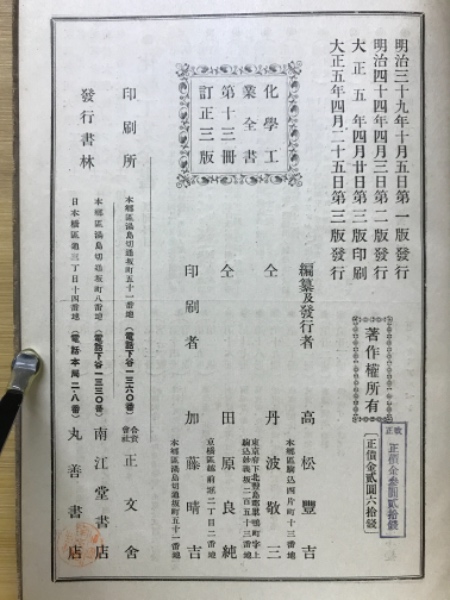 明治三十九年十月五日第一版發行
明治四十四年四月三日第二版發行
大正五年四月廿日第三版印刷
大正五年四月二十五日第三版發行
著作權所有
改正
正價金參圓貳拾錢
正價金貳圓六拾錢
化學工
業全書
第十三冊
訂正三版
編纂及發行者
高松豐吉
本鄕區駒込西片町十三番地
仝
丹波敬三
東京府下北豐島郡巢鴨町字上
駒込妙義坂二百五十三番地
仝
田原良純
二丁目二番地
印刷者
加藤晴吉
本鄕區湯島切通坂町五十一番地
印刷所
本鄕區湯島切通坂町五十一番地
(電話下谷一三六〇番)
合資
會社
正文舍
發行書林
本鄕區湯島切通坂町八番地
(電話下谷一三三〇番)
南江堂書店
日本橋區通三丁目十四番地
(電話本局二・八番)
丸善書店